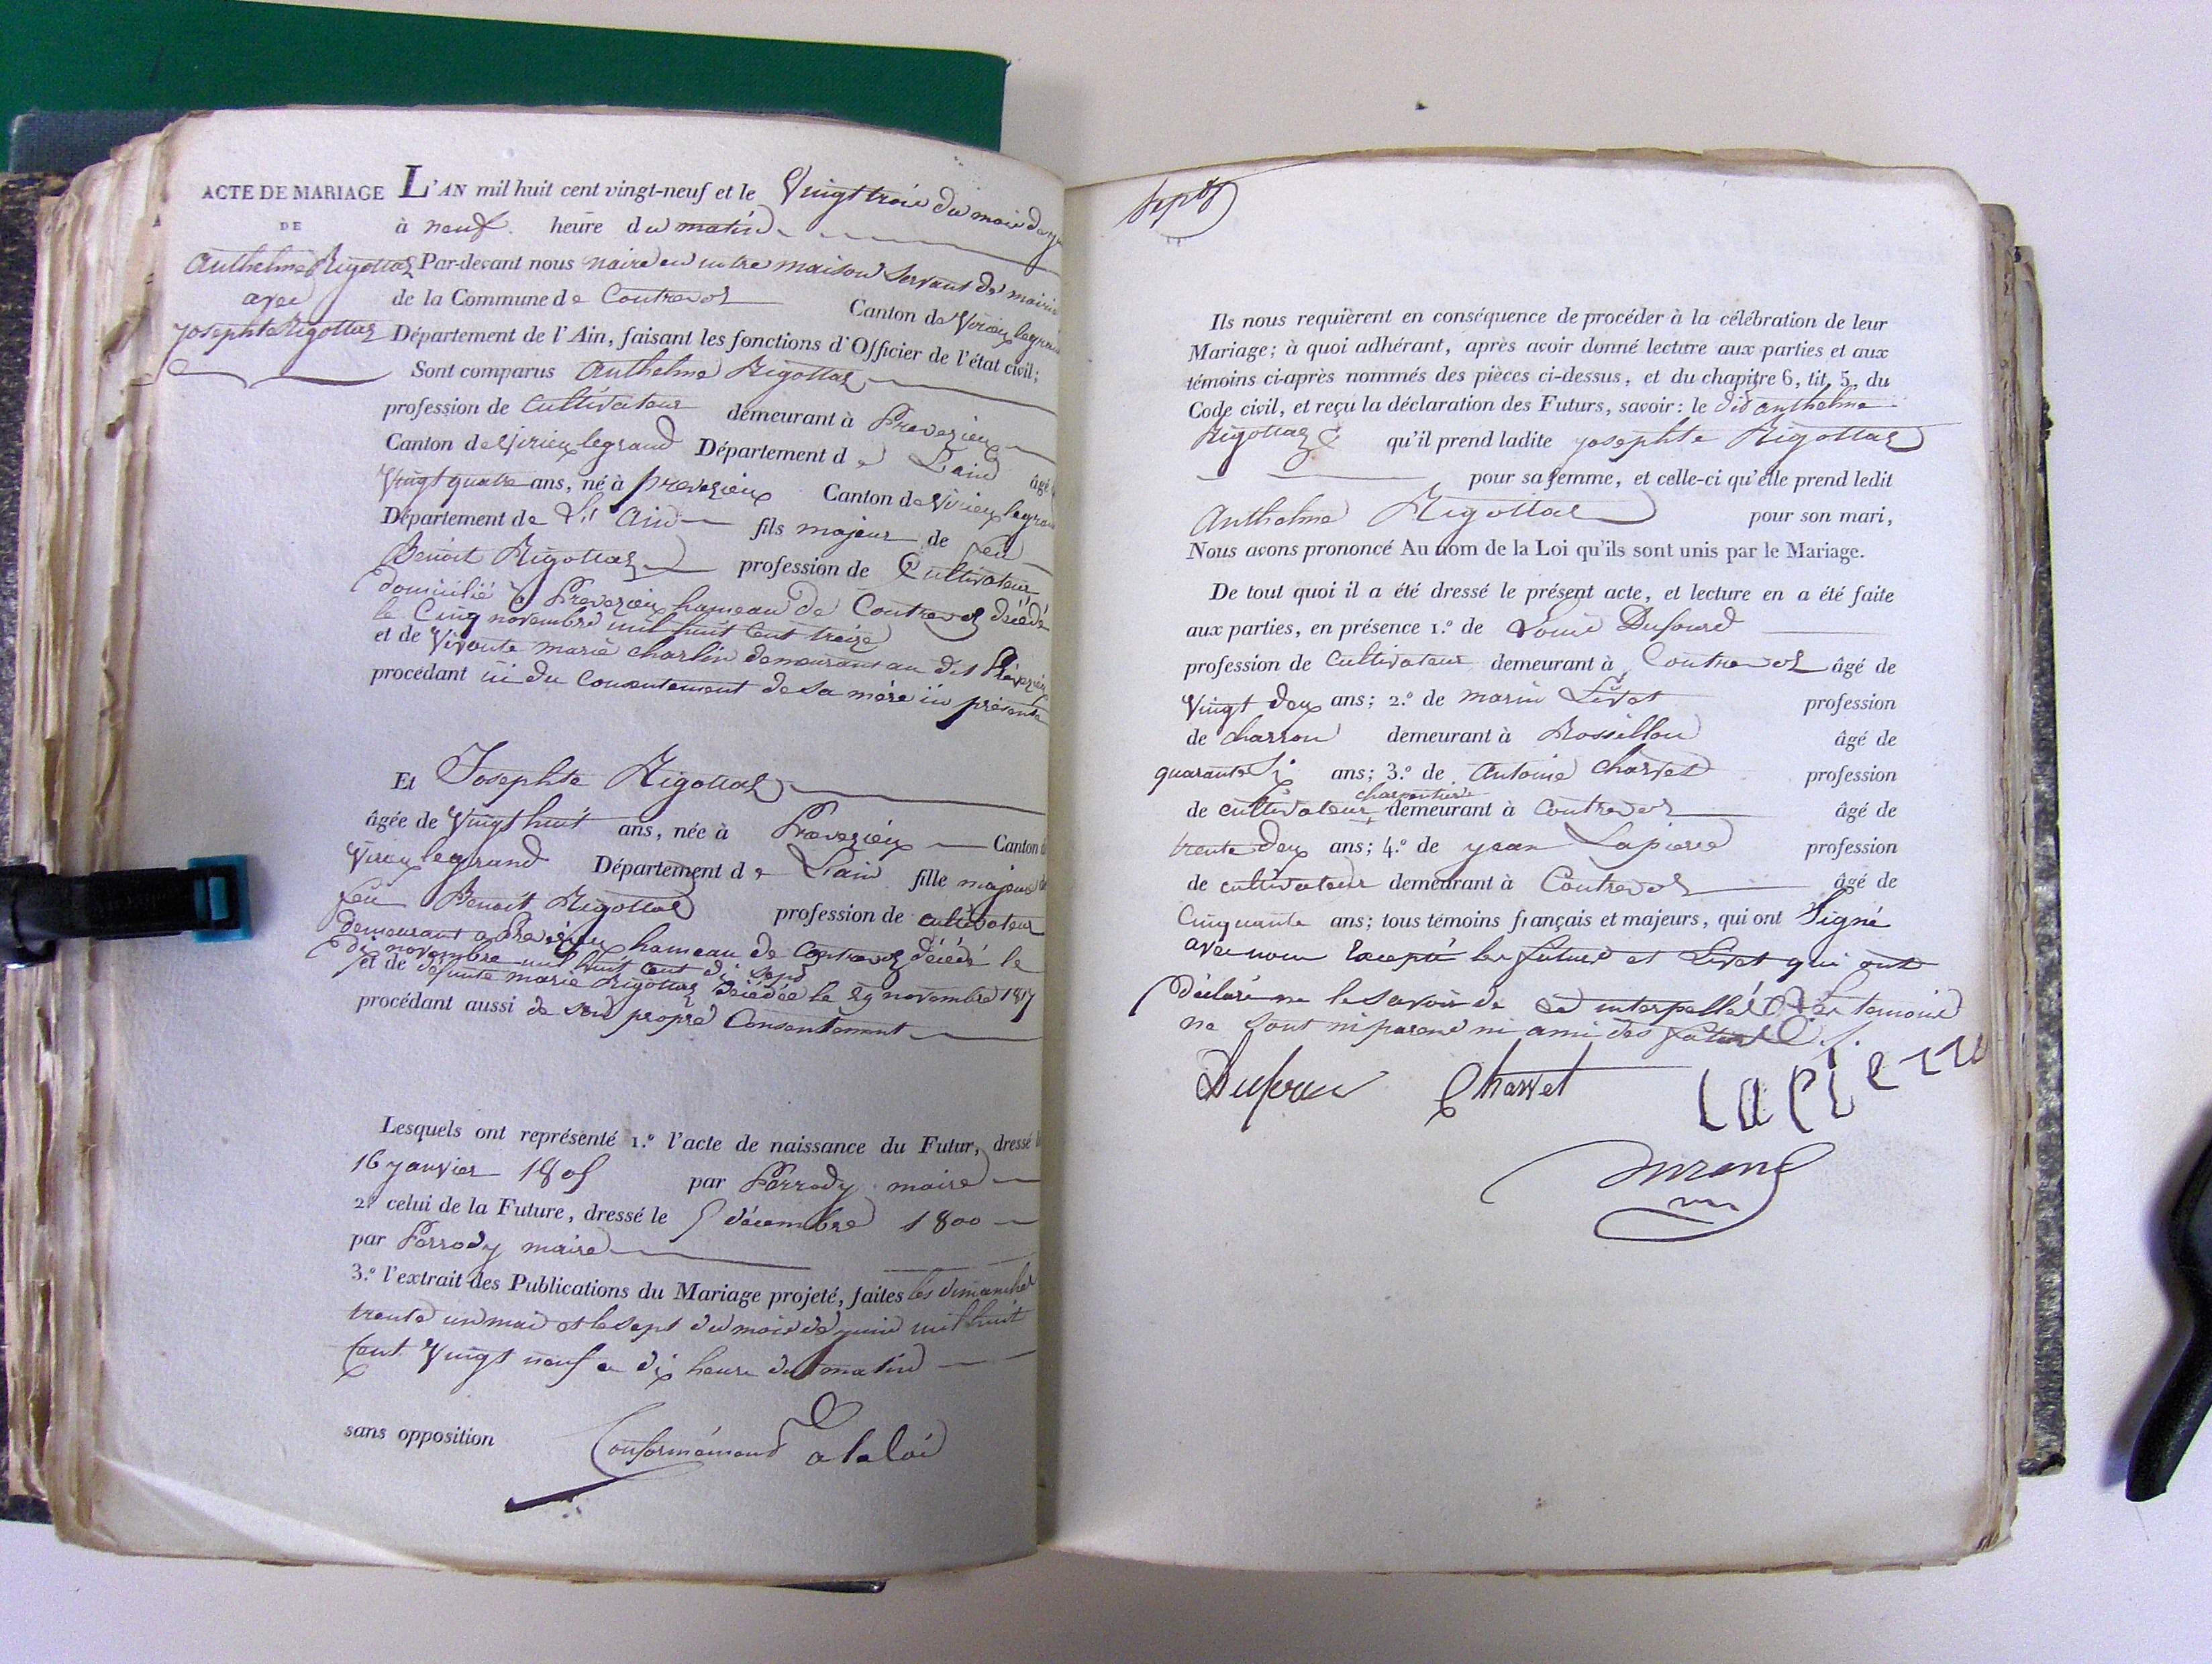 ACTE DE MARIAGE
DE
Anthelme Rigottaz
avec
Josephte Rigottaz
L'AN mil huit cent vingt-neuf et le Vingt trois du mois de
à neuf heure du matin
Par-devant nous maire en notre maison Servant de mairie
de la Commune de Contrevoz Canton de Virieu legrand
Département de l'Ain, faisant les fonctions d'Officier de l'état civil;
Sont comparus Anthelme Rigottaz
profession de Cultivateur demeurant à Prevezieu
Canton de Virieu legrand Département de L'ain âgé
Vingt quatre ans, né à prevezieu Canton de Virieu legrand
Département de L'Ain fils majeur de feu
Benoit Rigottaz profession de Cultivateur
domicilié à Prevezieu hameau de Contrevoz décédé
le Cinq novembre mil huit Cent treize
et de Vivante marie charlin demeurant au dit Prévezieu
procédant ici du Consentement de sa mère ici présente
Et Josephte Rigottaz
âgée de Vingt huit ans, née à Prevezieu Canton
Virieu legrand Département de L'ain fille majeure de
feu Benoit Rigottaz profession de cultivateur
demeurant a Prevezieu hameau de Contrevoz décédé le
dix novembre mil huit Cent dix sept
et de défunte marie Rigottaz décédée le 29 novembre 1817
procédant aussi de son propre Consentement
Lesquels ont représenté 1.° l'acte de naissance du Futur, dressé
16 janvier 1805 par Perrody maire
2.° celui de la Future, dressé le 5 décembre 1800
par Perrody maire
3.° l'extrait des Publications du Mariage projeté, faites les dimanches
trente un mai et le sept du mois de juin mil huit
Cent Vingt neuf a dix heure du matin
sans opposition Conformément a la loi
Ils nous requièrent en conséquence de procéder à la célébration de leur
Mariage; à quoi adhérant, après avoir donné lecture aux parties et aux
témoins ci-après nommés des pièces ci-dessus, et du chapitre 6, tit. 5, du
Code civil, et reçu la déclaration des Futurs, savoir: le dit anthelme
Rigottaz qu'il prend ladite josephte Rigottaz
pour sa femme, et celle-ci qu'elle prend ledit
Anthelme Rigottaz pour son mari,
Nous avons prononcé Au nom de la Loi qu'ils sont unis par le Mariage.
De tout quoi il a été dressé le présent acte, et lecture en a été faite
aux parties, en présence 1.° de Louis Dufourd
profession de Cultivateur demeurant à Contrevoz âgé de
Vingt deux ans; 2.° de marin Livet profession
de charron demeurant à Rossillon âgé de
quarante Six ans; 3.° de Antoine Charvet profession
charpentier
de cultivateur demeurant à Contrevoz âgé de
trente deux ans; 4.° de jean Lapierre profession
de cultivateur demeurant à Contrevoz âgé de
Cinquante ans; tous témoins français et majeurs, qui ont Signé
avec nous Excepté les futurs et Livet qui ont
déclaré ne le savoir de ce interpellés les temoins
ne sont ni parens ni ami des futurs
Dufour Charvet Lapierre